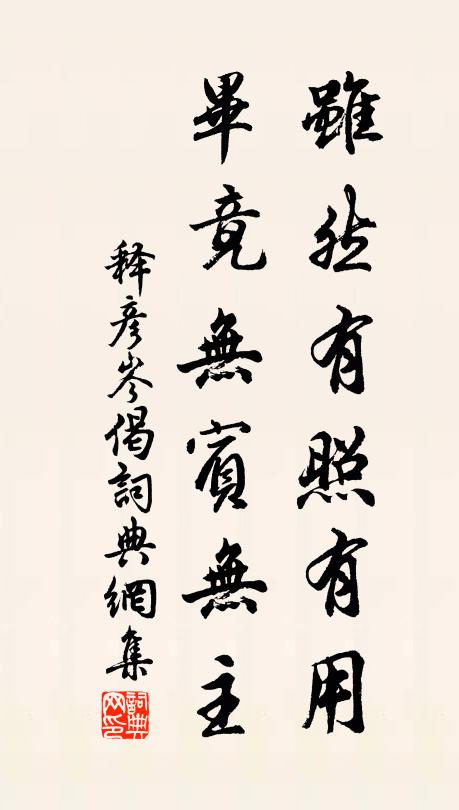 雖然有照有用
畢竟無賓無主
释彦岑偈詞典網集
詞典网印